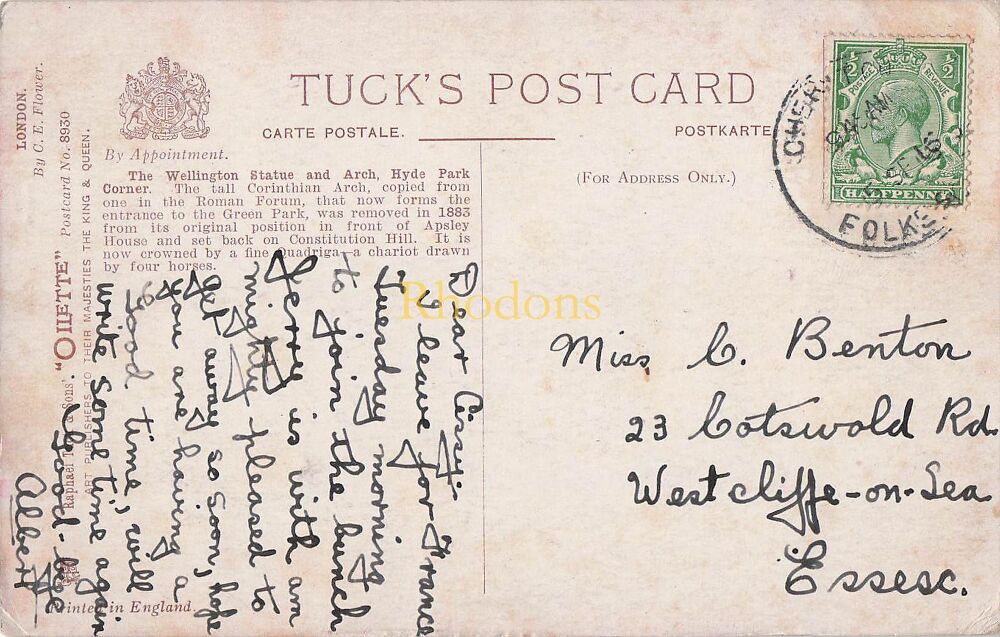 TUCK'S POST CARD
CARTE POSTALE.
POSTKARTE
By Appointment.
(FOR ADDRESS ONLY.)
The Wellington Statue and Arch, Hyde Park
Corner. The tall Corinthian Arch, copied from
one in the Roman Forum, that now forms the
entrance to the Green Park, was removed in 1883
from its original position in front of Apsley
House and set back on Constitution Hill. It is
now crowned by a fine Quadriga—a chariot drawn
by four horses.
LONDON.
By C. E. Flower.
Raphael Tuck & Sons' "OILETTE" Postcard No. 8930
ART PUBLISHERS TO THEIR MAJESTIES THE KING & QUEEN.
Printed in England.
Dear Cissy:
I leave for France
Tuesday morning
to join the bunch
Jerry is with am
mighty pleased to
get away so soon, hope
you are having a
good time, will
write some time again
Good-bye
Albert
Miss. C. Benton
23 Cotswold Rd.
Westcliffe-on-Sea
Essesc.
POSTAGE REVENUE
½ ½
HALFPENNY
AM
5 SE 16
FOLKE
Rhodons